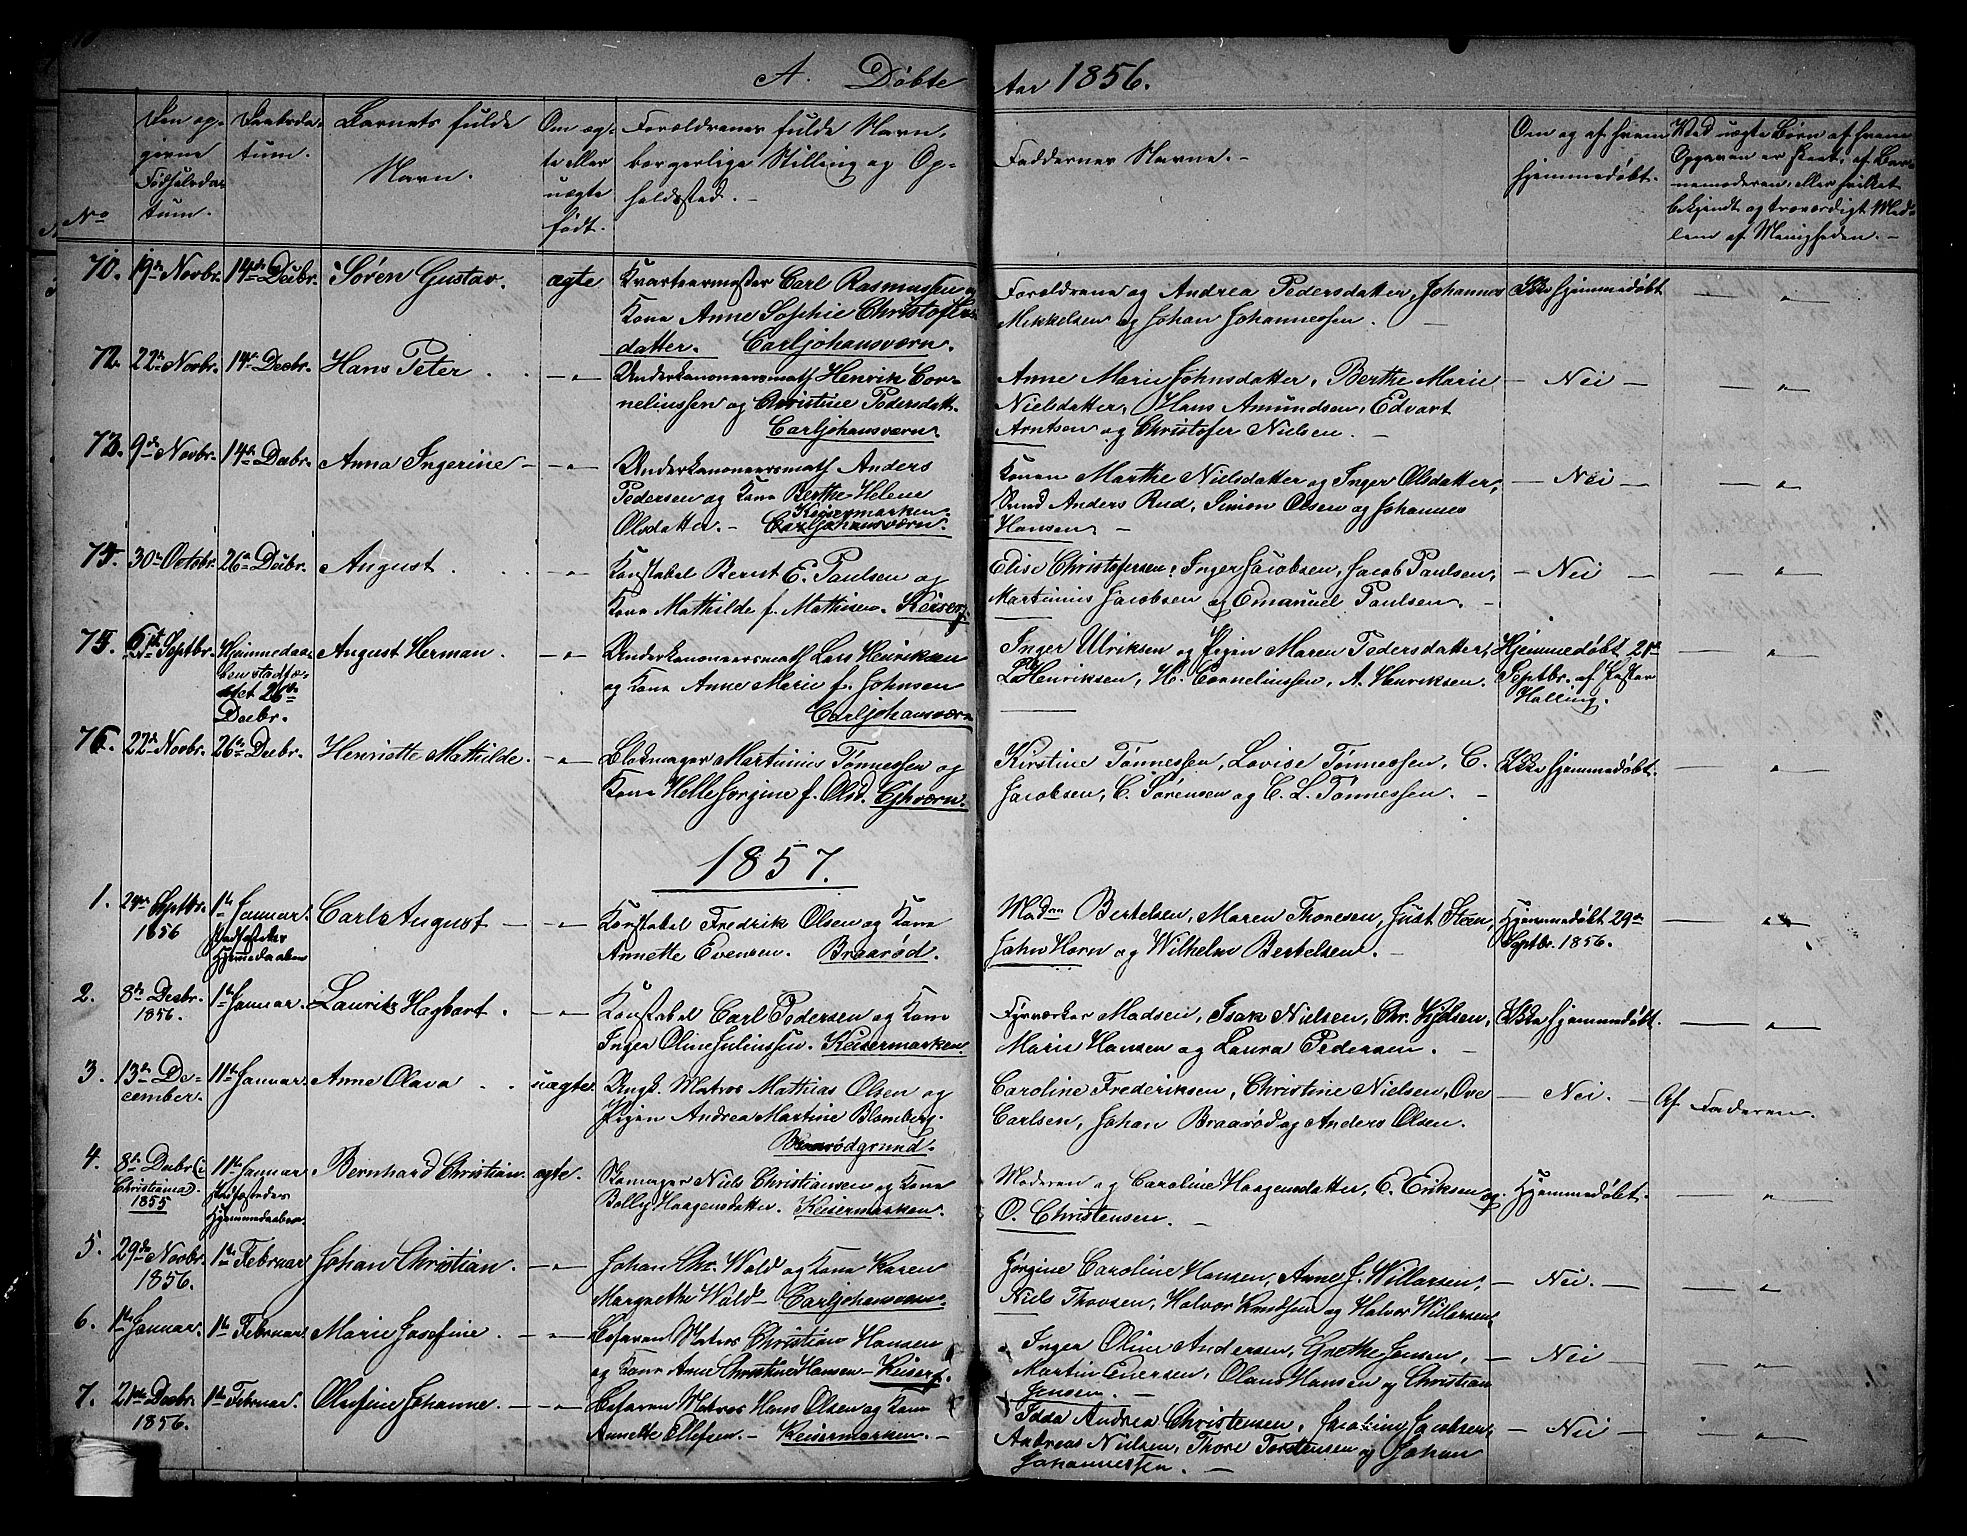 A. Døbte Aar 1856.
No
Den op-
givne
Fødselsda-
tum.
Daabsda-
tum.
Barnets fulde
Navn.
Om æg-
te eller
uægte
født.
Forældrenes fulde Navn,
borgerlige Stilling og Op-
holdssted. -
Faddernes Navne. -
Om og af hvem
hjemmedøbt.
Ved uægte Børn af hvem
Opgaven er skeet, af Bar-
nemoderen, eller hvilket
bekjendt og troværdigt Med-
lem af Menigheden. -
70. 19de Novbr. 14de Decbr. Søren Gustav. ægte
Kvarteermester Carl Rasmussen og
Kone Anne Sophie Christofers-
datter. Carljohansværn.
Forældrene og Andrea Pedersdatter, Johannes
Mikkelsen og Johan Johannessen. -
Ikke hjemmedøbt
72. 22de Novbr. 14de Decbr. Hans Peter - " -
Underkanoneersmath Henrik Cor-
neliussen og Christine Pedersdatt.
Carljohansværn.
Anne Marie Johnsdatter, Berthe Marie
Nielsdatter, Hans Amundsen, Edvart
Arntsen og Christofer Nielsen. -
- Nei -
73. 9de Novbr. 14de Decbr. Anna Ingerine - - " -
Underkanoneersmath Anders
Pedersen og Kone Berthe Helene
Keisermarken.
Olsdatter. - Carljohansværn.
Konen Marthe Nielsdatter og Inger Olsdatter,
Svend Anders Rud, Simon Olsen og Johannes
Hansen. -
- Nei -
74. 30te Octobr. 26de Decbr. August - " -
Konstabel Bernt E. Paulsen og
Kone Mathilde f. Mathisen. Keiserm.
Elise Christofersen, Inger Jacobsen, Jacob Paulsen,
Martinius Jacobsen og Emanuel Paulsen. -
- Nei -
75. 6te Septbr. Hjemmedaa-
ben stadfæ-
stet 26de
Decbr.
August Herman. - " -
Underkanoneersmath Lars Henriksen
og Kone Anne Marie f. Johnsen
Carljohansværn
Inger Ulriksen og Pigen Maren Pedersdatter,
L. Henriksen, H. Corneliussen, A. Henriksen.
Hjemmedøbt 21de
Septbr. af Pastor
Halling.
76. 22de Novbr. 26de Decbr. Henriette Mathilde. - " -
Blokmager Martinius Tønnessen og
Kone Helle Jorgine f. Olsd. Cjhværn.
Kirstine Tønnessen, Lovise Tønnessen, C.
Jacobsen, C. Sørensen og C. L. Tønnessen. -
Ikke hjemmedøbt.
1857.
1. 29de Septbr.
1856
1ste Januar.
Stadfæstelse
Hjemmedaaben
Carl August - - " -
Konstabel Fredrik Olsen og Kone
Annette Evensen. Braarød.
Madam Bertelsen, Maren Thoresen, Just Steen,
John Horn og Wilhelm Bertelsen. -
Hjemmedøbt 29de
Septbr. 1856.
2. 8de Decbr.
1856.
1ste Januar. Laurits Hagbart. - " -
Konstabel Carl Pedersen og Kone
Inger Oline Juliussen. Keisermarken.
Fyrværker Madsen, Isak Nielsen, Chr.
Marie Hansen og Laura Pedersen. -
Ikke hjemmedøbt.
3. 13de De-
cember.
11te Januar. Anne Olava uægte.
Ungk. Matros Mathias Olsen og
Pigen Andrea Martine Blomberg.
Braarødgrund.
Caroline Frederiksen, Christine Nielsen, Ove
Carlsen, Johan Braarød og Anders Olsen.
- Nei. -
Af Faderen.
4. 8de Decbr (i
Christiania).
1855
11te Januar
Stadfæstedes
Hjemmedaaben
Bernhard Christian. ægte.
Niels Christiansen og Kone
Bolly Haagensdatter. Keisermarken.
Moderen og Caroline Haagensdatter, E. Eriksen og
O. Christensen. -
Hjemmedøbt.
5. 29de Novbr.
1856.
1ste Februar Johan Christian. - " -
Johan Chr. Wold og Kone Karen
Margrethe Wold - Carljohansværn.
Jørgine Caroline Hansen, Anne J. Willarsen,
Niels Thovsen, Halvor Knudsen og Halvor Willersen,
- Nei. -
6. 1ste Januar. 1ste Februar. Marie Josefine. - " -
Befaren Matros Christian Hansen
og Kone Anne Christine Hansen - Keiserf.
Inger Oline Andersen, Grethe Jensen,
Martin Enersen, Olaus Hansen og Christian
Jensen. -
- Nei -
7. 21de Decbr.
1856.
1ste Februar. Olefine Johanne. - - " -
Befaren Matros Hans Olsen og Kone
Annette Ellefsen. - Keisermarken. -
Idda Andrea Christensen, Jacobine Jacobsen,
Andreas Nielsen, Thore Torstensen og Johan
Johannessen. -
- Nei -